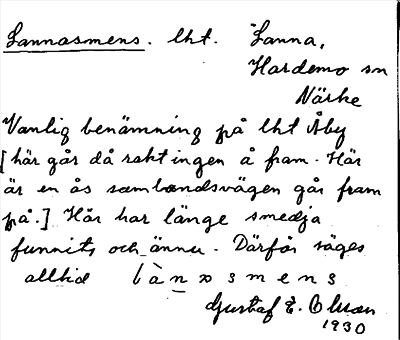 Lannasmens. lht. Lanna,
Hardemo sn
Närke
Vanlig benämning på lht Åby
[här går då rakt ingen å fram. Här
är en ås som landsvägen går fram
på.] Här har länge smedja
funnits och ännu. Därför säges
alltid lànasmens
Gustaf E. Olsson
1930